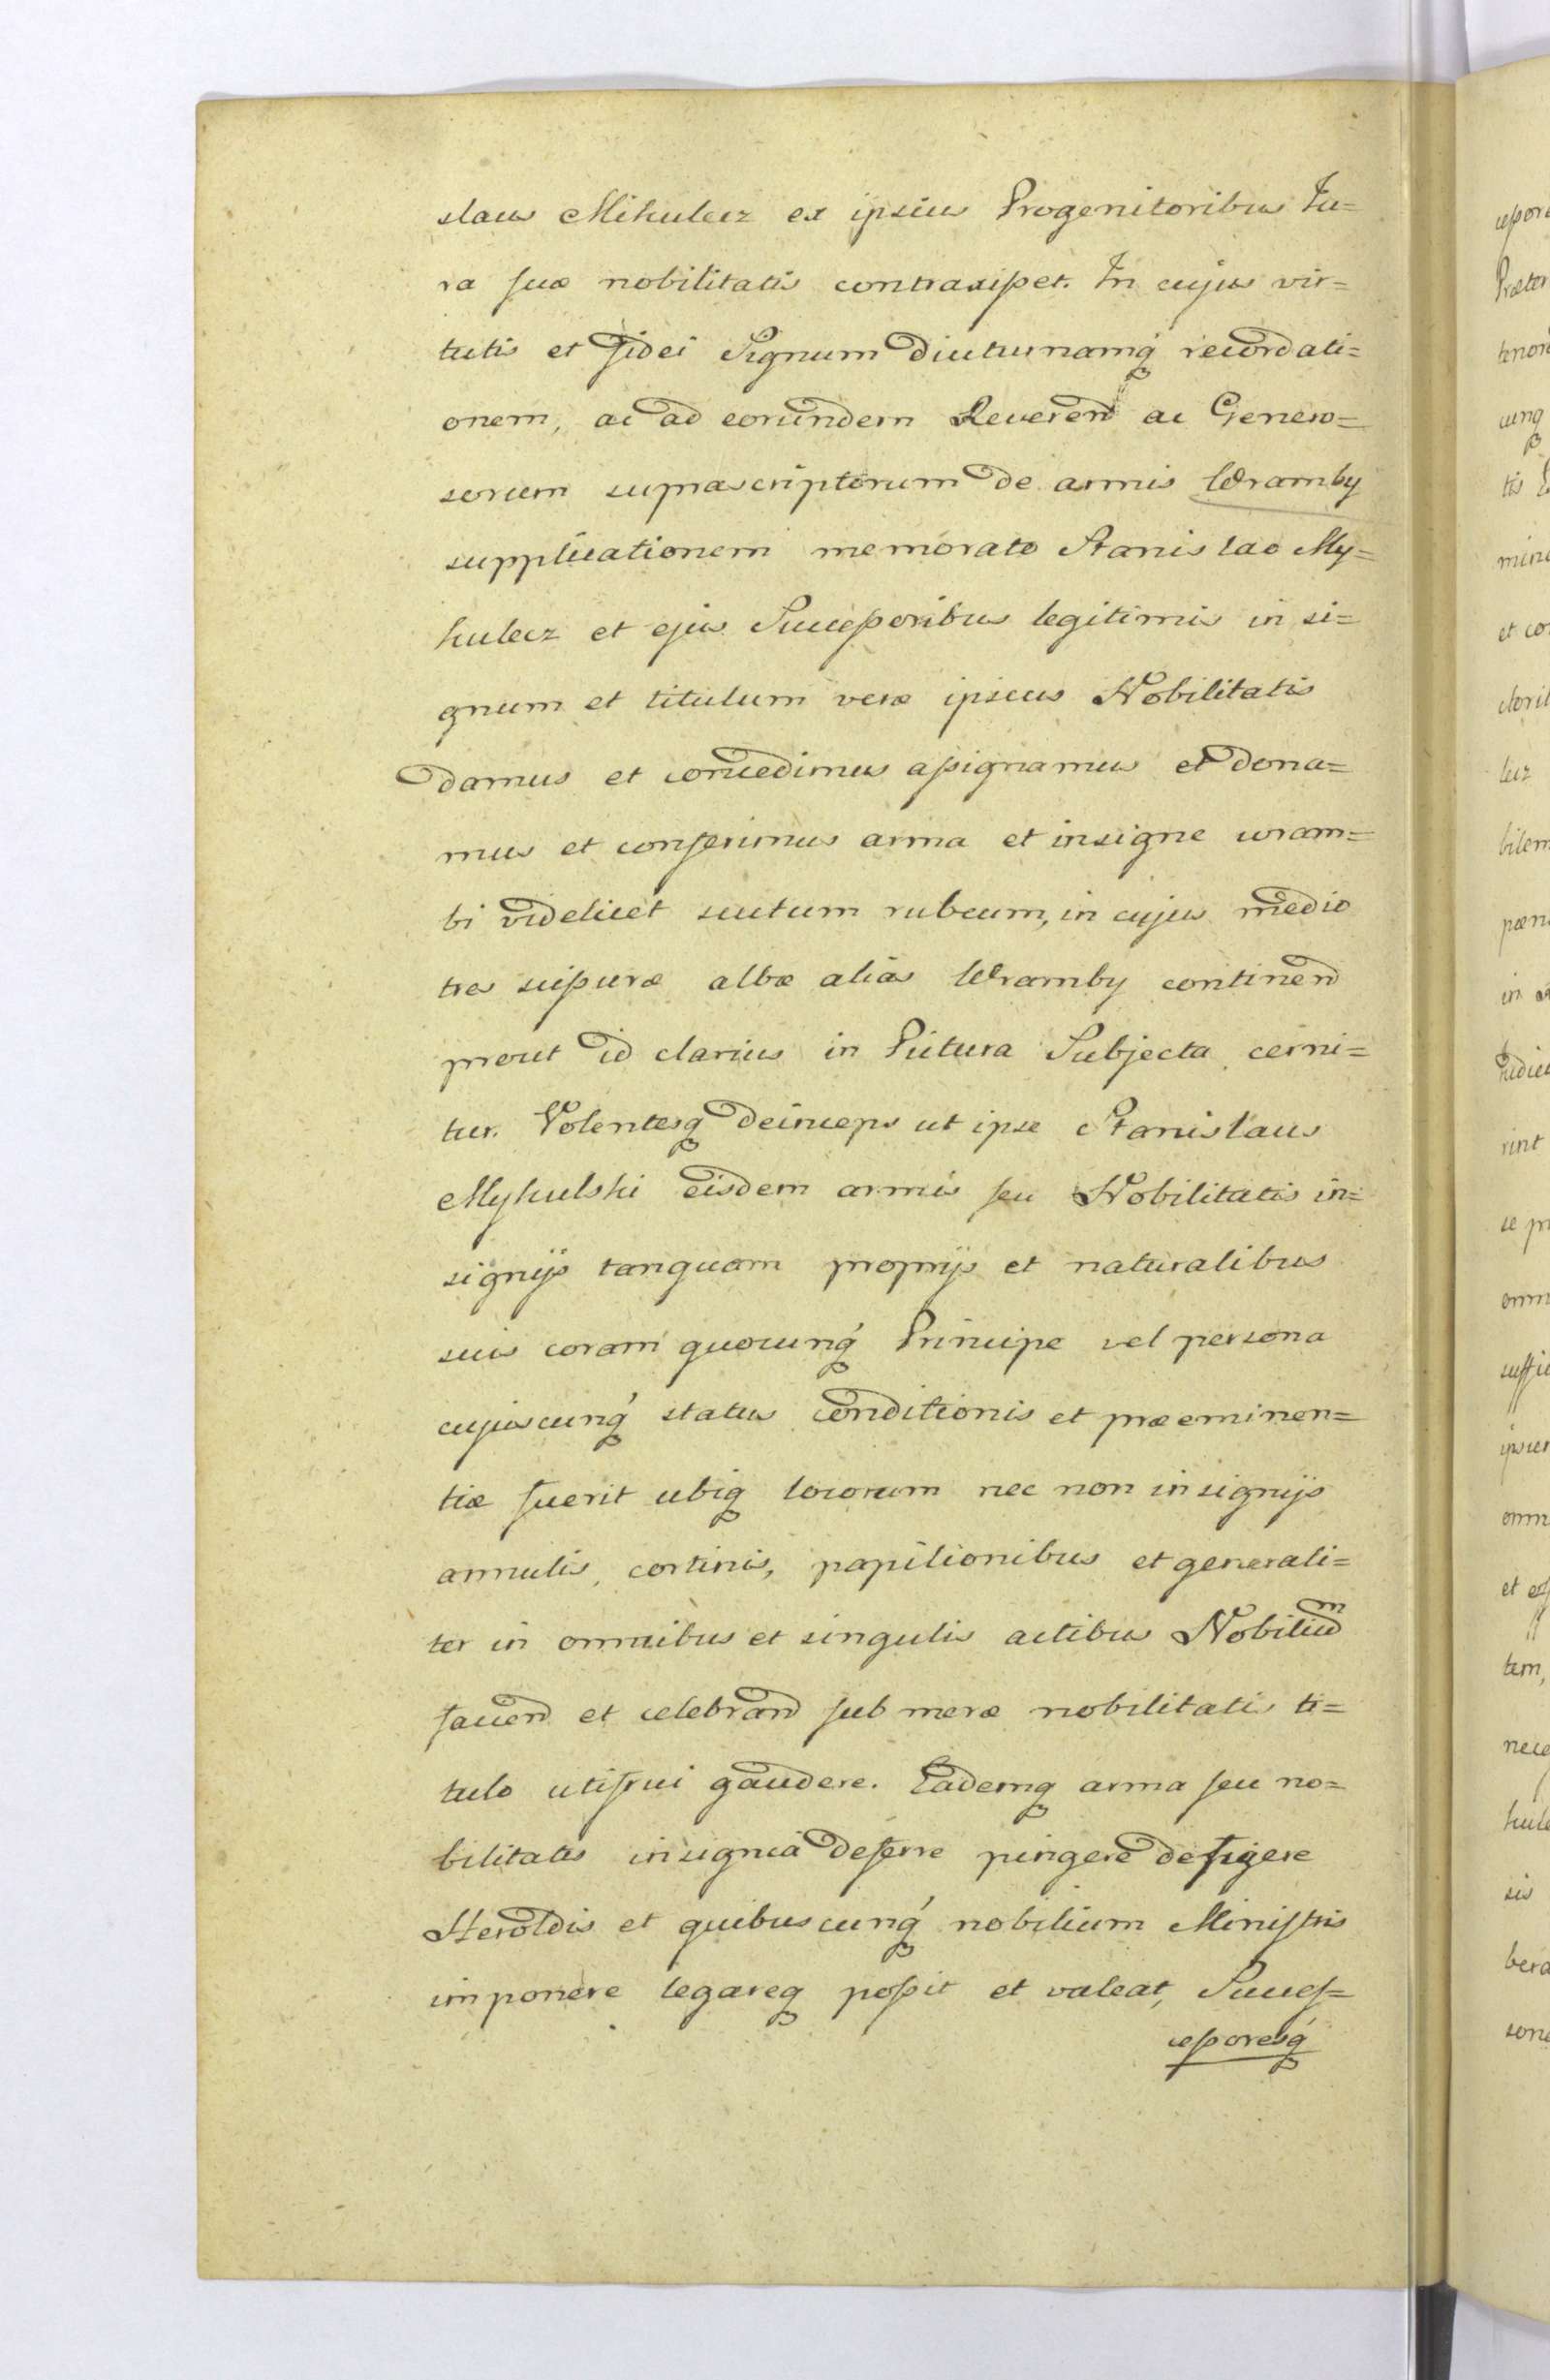 slaus Mikulecz ex ipsius Progenitoribus Ju=
ra suæ nobilitatis contraxisset. In cujus vir=
tutis et fidei Signum diuturnamq́ recordati=
onem, ac ad eorundem Reverend ac Genero=
sorum suprascriptorum de armis Wramby
supplicationem memorato Stanislao My=
kulecz et ejus Successoribus legitimis in si=
gnum et titulum veræ ipsius Nobilitatis
damus et concedimus assignamus et dona=
mus et conferimus arma et insigne wram=
bi videlicet scutum rubeum, in cujus medio
tres scissuræ albæ alias Wramby continend
prout id clarius in Pictura Subjecta cerni=
tur. Volentesq deinceps ut ipse Stanislaus
Mykulski eisdem armis seu Nobilitatis in=
signijs tanquam proprijs et naturalibus
suis coram quocunq́ Principe vel persona
cujuscunq́ status conditionis et præeminen=
tiæ fuerit ubiq locorum nec non insignijs
annulis, cortinis, papilionibus et generali=
ter in omnibus et singulis actibus Nobilium
faciend et celebrand sub meræ nobilitatis ti=
tulo utifrui gaudere. Eademq arma seu no=
bilitatis insignia deferre pingere defigere
Heroldis et quibuscunq́ nobilium Ministris
imponere legareq possit et valeat, Succes=
cessoresq́